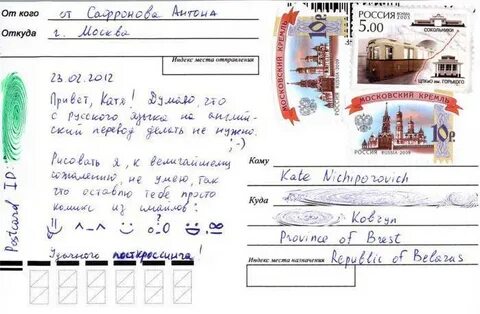 От кого от Сафронова Антона
Откуда г. Москва
Индекс места отправления
23.02.2012
Привет, Катя! Думаю, что
с русского языка на англий-
ский перевод делать не нужно.
;-)
Рисовать я, к величайшему
сожалению, не умею, так
что оставлю тебе просто
комикс из смайлов:
^_^ :) ? o.O :D .∞
Удачного посткроссинга!
Postcard ID:
МОСКОВСКИЙ КРЕМЛЬ
10р.
РОССИЯ RUSSIA · 2009
РОССИЯ
RUSSIA
2005
5.00
СОКОЛЬНИКИ
ЦПКИО им. ГОРЬКОГО
МОСКОВСКИЙ КРЕМЛЬ
10р.
РОССИЯ RUSSIA · 2009
Кому Kate Nichiporovich
Куда
Kobryn
Province of Brest
Индекс места назначения Republic of Belarus